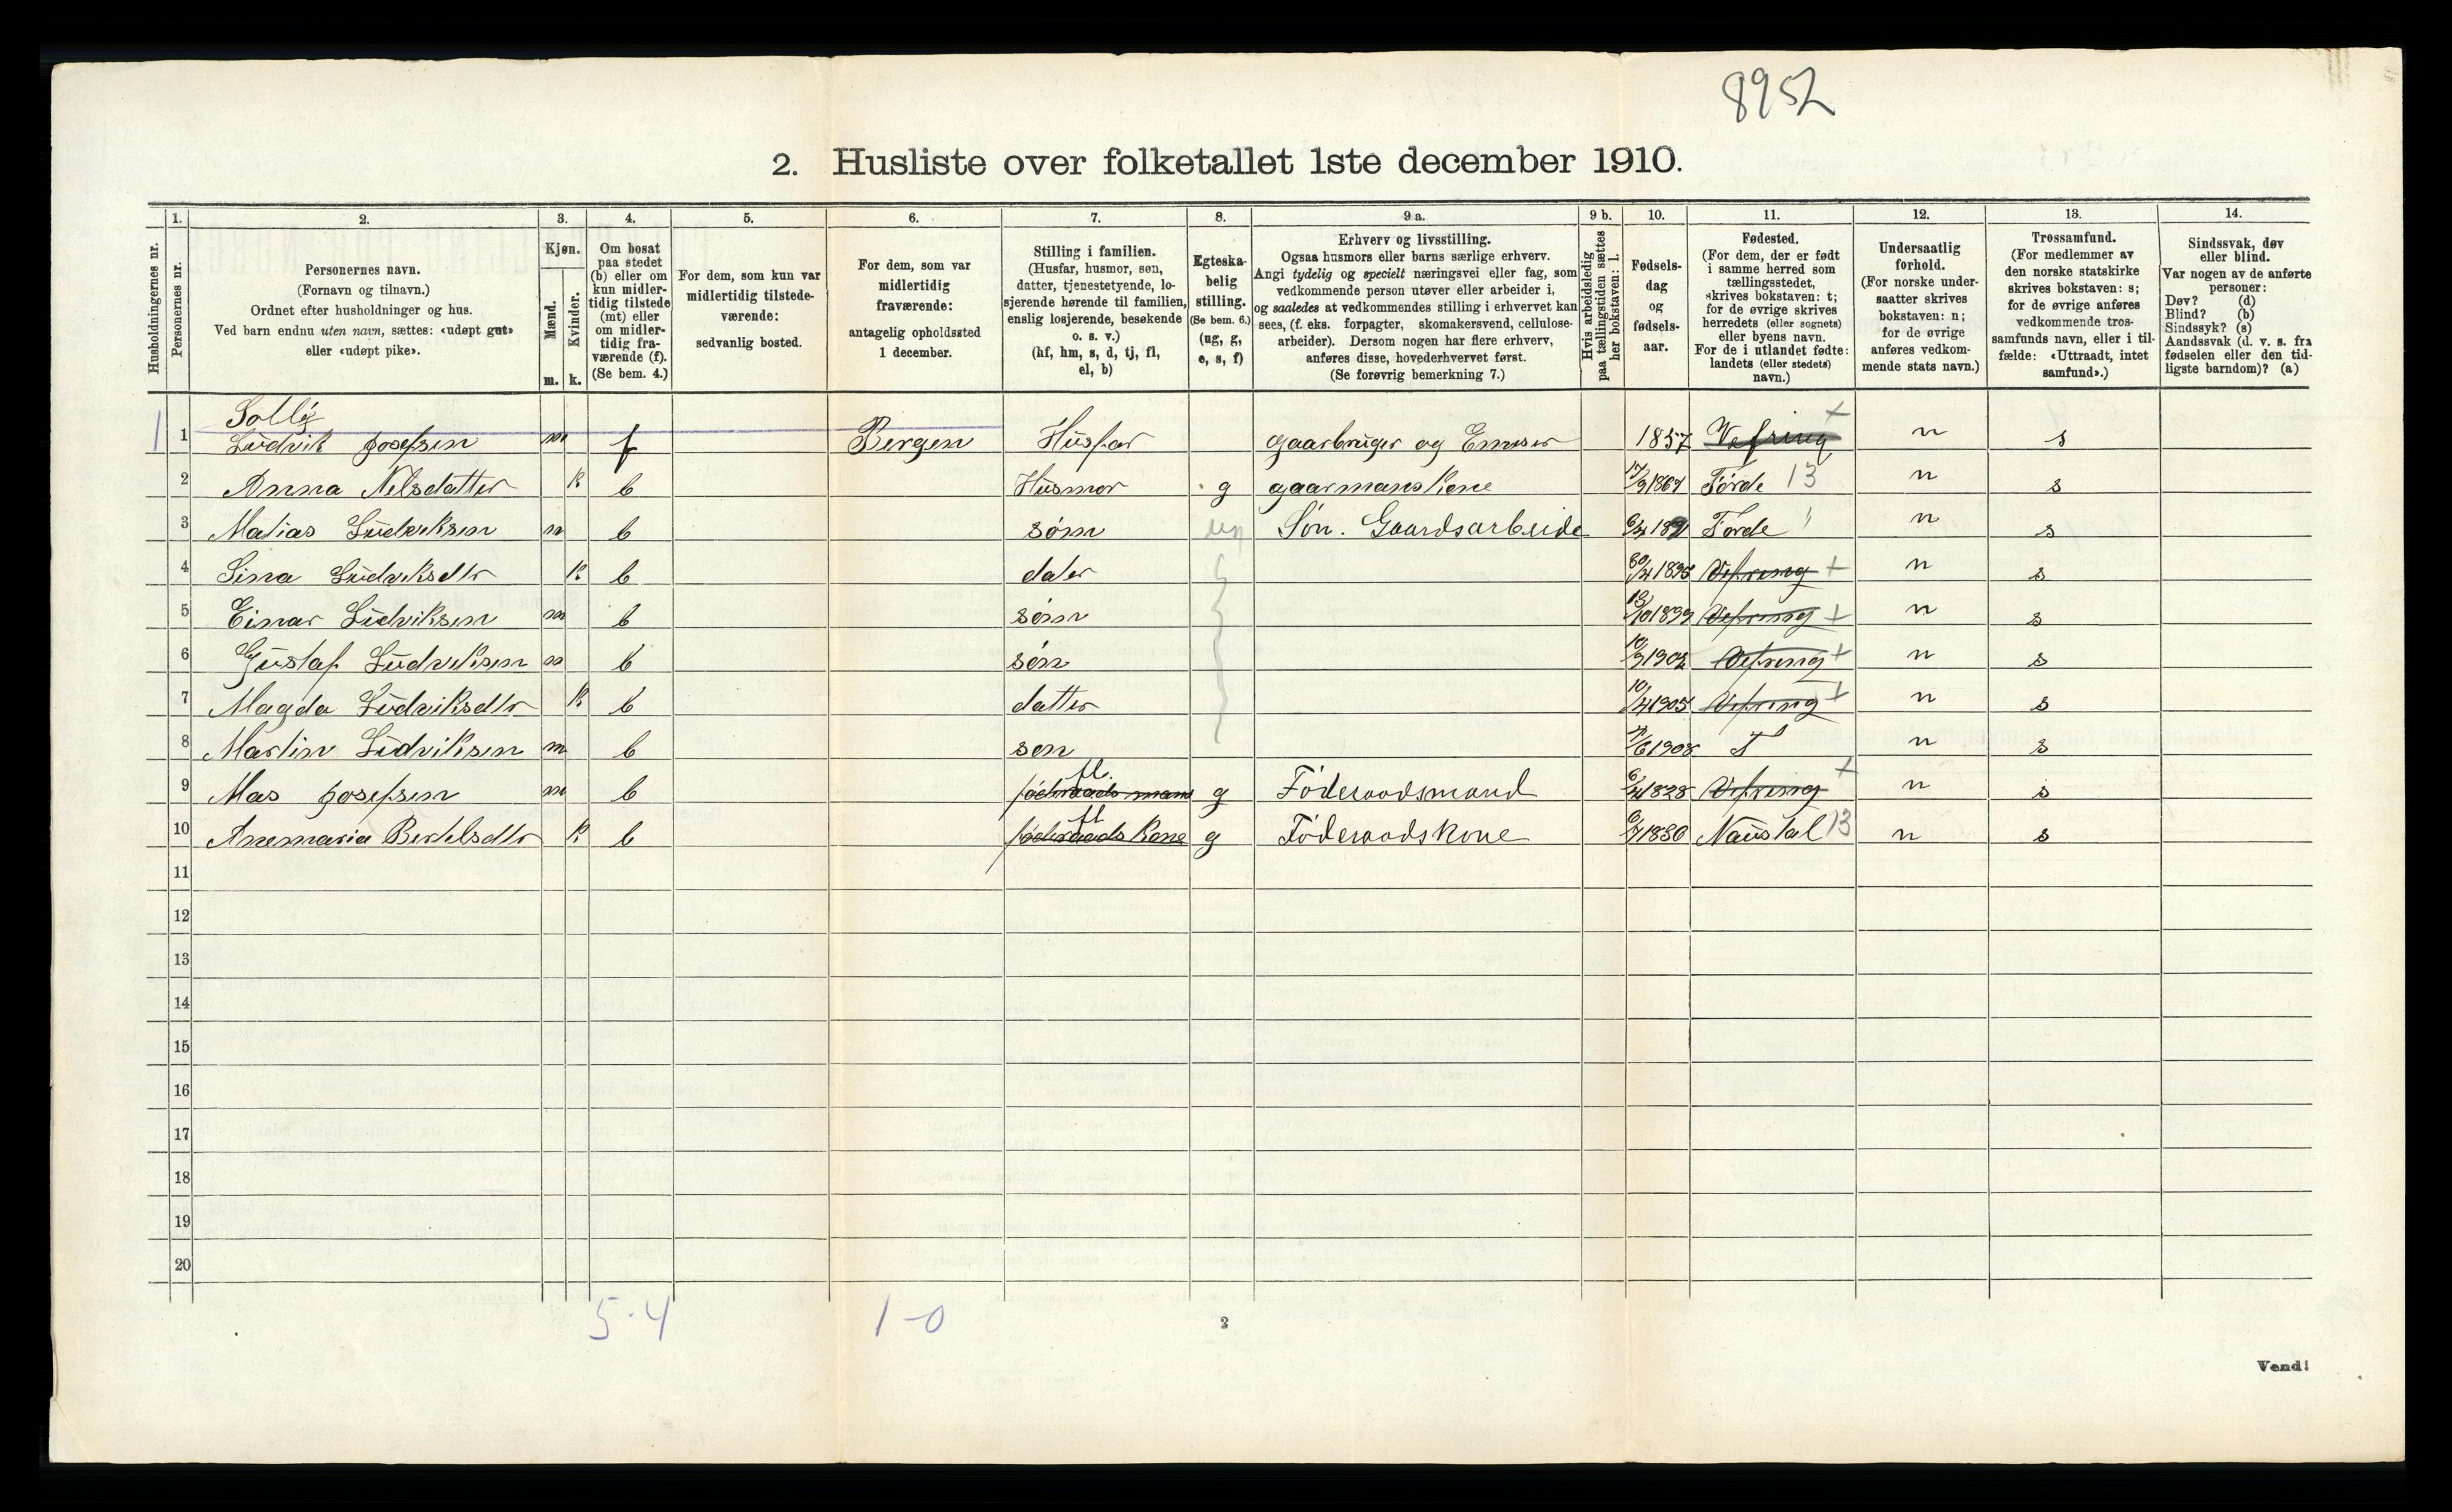 8952
2. Husliste over folketallet 1ste december 1910.
1. 2. 3. 4. 5. 6. 7. 8. 9 a. 9 b. 10. 11. 12. 13. 14.
Husholdningernes nr.
Personernes nr.
Personernes navn.
(Fornavn og tilnavn.)
Ordnet efter husholdninger og hus.
Ved barn endnu uten navn, sættes: «udøpt gut»
eller «udøpt pike».
Kjøn.
Mænd.
Kvinder.
m. k.
Om bosat
paa stedet
(b) eller om
kun midler-
tidig tilstede
(mt) eller
om midler-
tidig fra-
værende (f).
(Se bem. 4.)
For dem, som kun var
midlertidig tilstede-
værende:
sedvanlig bosted.
For dem, som var
midlertidig
fraværende:
antagelig opholdssted
1 december.
Stilling i familien.
(Husfar, husmor, søn,
datter, tjenestetyende, lo-
sjerende hørende til familien,
enslig losjerende, besøkende
o. s. v.)
(hf, hm, s, d, tj, fl,
el, b)
Egteska-
belig
stilling.
(Se bem. 6.)
(ug, g,
e, s, f)
Erhverv og livsstilling.
Ogsaa husmors eller barns særlige erhverv.
Angi tydelig og specielt næringsvei eller fag, som
vedkommende person utøver eller arbeider i,
og saaledes at vedkommendes stilling i erhvervet kan
sees, (f. eks. forpagter, skomakersvend, cellulose-
arbeider). Dersom nogen har flere erhverv,
anføres disse, hovederhvervet først.
(Se forøvrig bemerkning 7.)
Hvis arbeidsledig
paa tællingstiden sættes
her bokstaven: l.
Fødsels-
dag
og
fødsels-
aar.
Fødested.
(For dem, der er født
i samme herred som
tællingsstedet,
skrives bokstaven: t;
for de øvrige skrives
herredets (eller sognets)
eller byens navn.
For de i utlandet fødte:
landets (eller stedets)
navn.)
Undersaatlig
forhold.
(For norske under-
saatter skrives
bokstaven: n;
for de øvrige
anføres vedkom-
mende stats navn.)
Trossamfund.
(For medlemmer av
den norske statskirke
skrives bokstaven: s;
for de øvrige anføres
vedkommende tros-
samfunds navn, eller i til-
fælde: «Uttraadt, intet
samfund».)
Sindssvak, døv
eller blind.
Var nogen av de anførte
personer:
Døv? (d)
Blind? (b)
Sindssyk? (s)
Aandssvak (d. v. s. fra
fødselen eller den tid-
ligste barndom)? (a)
1 1 Ludvik Josefsen m f Bergen Husfar gaarbruger og 1857 Vefring + n s
2 Anna Nelsdatter k b Husmor g gaarmans kone Førde 13 n s
3 Matias Ludviksen m b sønn ug Søn. Gaardsarbeide Førde " n s
4 Sina Ludviksdtr k b dater Vefring + n s
5 Einar Ludviksen m b sønn 13/10 1899 Vefring + n s
6 Gustaf Ludviksen m b søn Vefring + n s
7 Magda Ludviksdtr k b datter Vefring + n s
8 Martin Ludviksen m b søn T n s
9 Mas Josefsen m b føderaads mans fl. g Føderaadsmand Vefring + n s
10 Anemaria Bertelsdtr k b føderaads kone fl g Føderaadskone Naustal 13 n s
11
12
13
14
15
16
17
18
19
20
5-4 1-0
2
Vend!